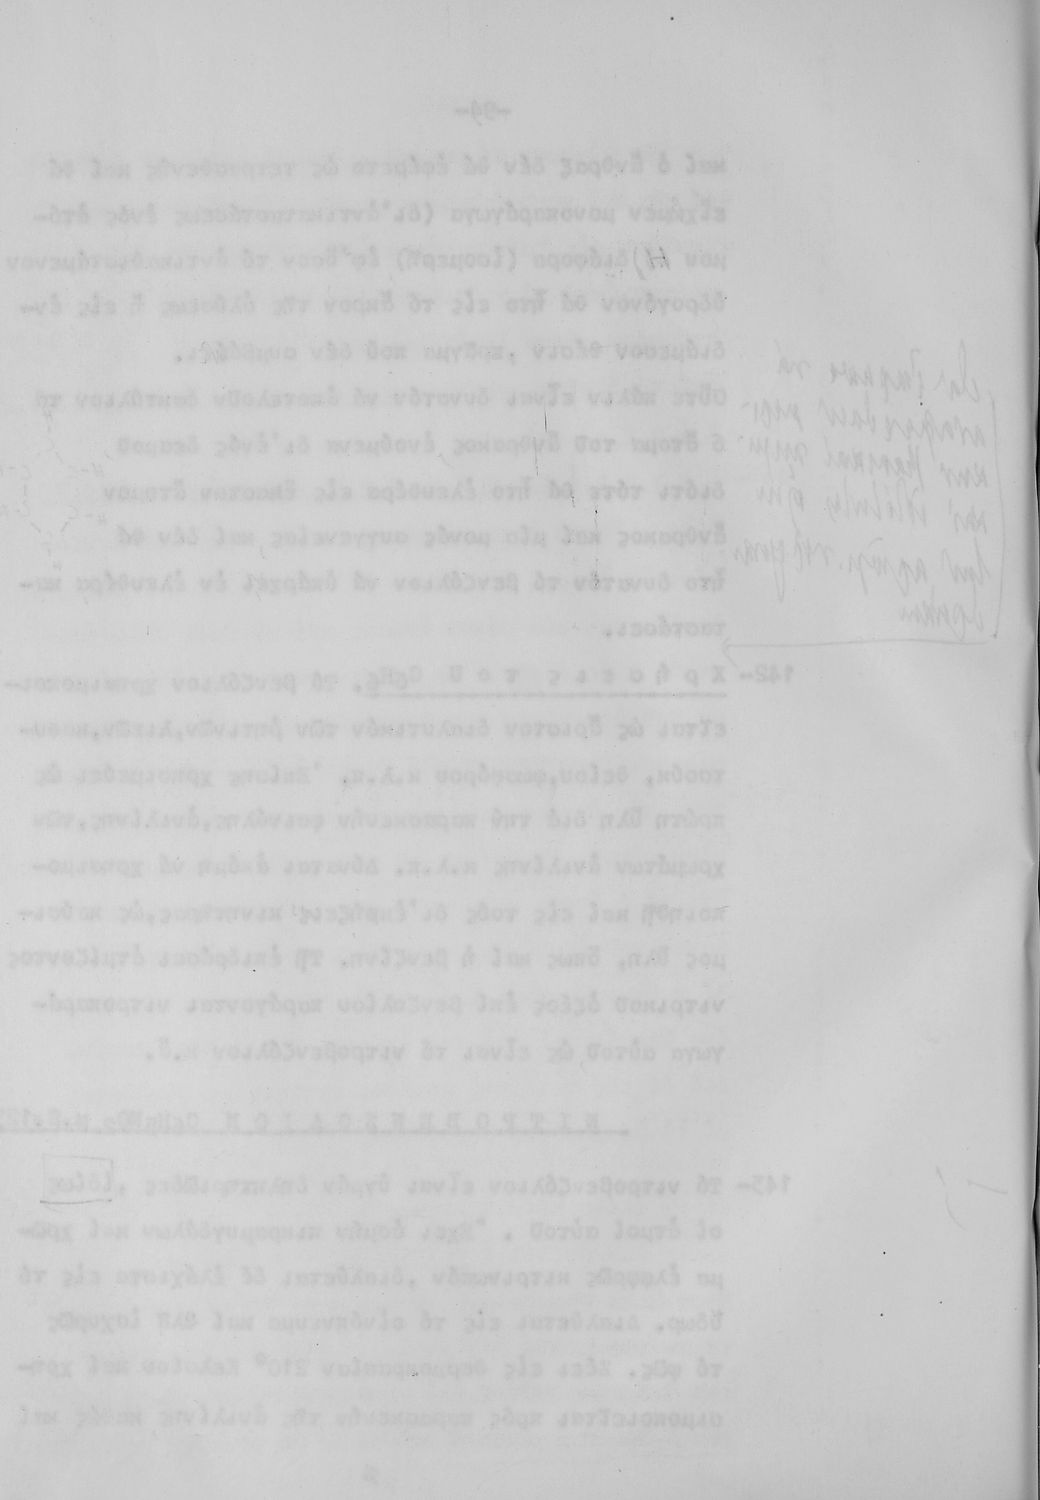 -94-
καί ὁ ἄνθραξ δέν θά ἐφέρετο ὡς τετρασθενής καί θά
εἴχομεν μονοπαράγωγα (δι'ἀντικαταστάσεως ἑνός ἀτό-
μου H) διάφορα (ἰσομερῆ) ἐφ'ὅσον τό ἀντικαθιστάμενον
ὑδρογόνον θά ἦτο εἰς τό ἄκρον τῆς ἀλύσεως ἤ εἰς ἐν-
διάμεσον θέσιν ,πρᾶγμα πού δέν συμβαίνει.
Οὔτε πάλιν εἶναι δυνατόν νά ἀποτελοῦν δακτύλιον τά
6 ἄτομα τοῦ ἄνθρακος ἑνούμενα δι'ἑνός δεσμοῦ,
διότι τότε θά ἦτο ἐλευθέρα εἰς ἕκαστον ἄτομον
ἄνθρακος καί μία μονάς συγγενείας καί δέν θά
ἦτο δυνατόν τό βενζόλιον νά ὑπάρχει ἐν ἐλευθέρα κα-
ταστάσει.
142- Χ ρ ή σ ε ι ς τ ο ῦ C6H6. Τό βενζόλιον χρησιμοποι-
εῖται ὡς ἄριστον διαλυτικόν τῶν ρητινῶν,λιπῶν,καου-
τσούκ, θείου,φωσφόρου κ.λ.π. Ἐπίσης χρησιμεύει ὡς
πρώτη ὕλη διά τήν παρασκευήν φαινόλης,ἀνιλίνης,τῶν
χρωμάτων ἀνιλίνης κ.λ.π. Δύναται ἀκόμη νά χρησιμο-
ποιηθῆ καί εἰς τούς δι'ἐκρήξεως κινητῆρας,ὡς καύσι-
μος ὕλη, ὅπως καί ἡ βενζίνη. Τῆ ἐπιδράσει ἀτμίζοντος
νιτρικοῦ ὀξέος ἐπί βενζολίου παράγονται νιτροπαρά-
γωγα αὐτοῦ ὡς εἶναι τό νιτροβενζόλιον κ.ἄ.
Ν Ι Τ Ρ Ο Β Ε Ν Ζ Ο Λ Ι Ο Ν C6H5NO2
143- Τό νιτροβενζόλιον εἶναι ὑγρόν δηλητηριῶδες ,ἰδίως
οἱ ἀτμοί αὐτοῦ . Ἔχει ὀσμήν πικραμυγδάλων καί χρῶ-
μα ἐλαφρῶς κιτρινωπόν ,διαλύεται δέ ἐλάχιστα εἰς τό
ὕδωρ. Διαλύεται εἰς τό οἰνόπνευμα καί ἰσχυρῶς
τό φῶς. Ζέει εἰς θερμοκρασίαν 210° Κελσίου καί χρη-
σιμοποιεῖται πρός παρασκευήν τῆς ἀνιλίνης καθώς καί